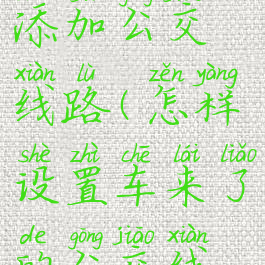 添加公交
xiàn lù zěn yàng
线路(怎样
shè zhì chē lái liǎo
设置车来了
de gōng jiāo xiàn
的公交线